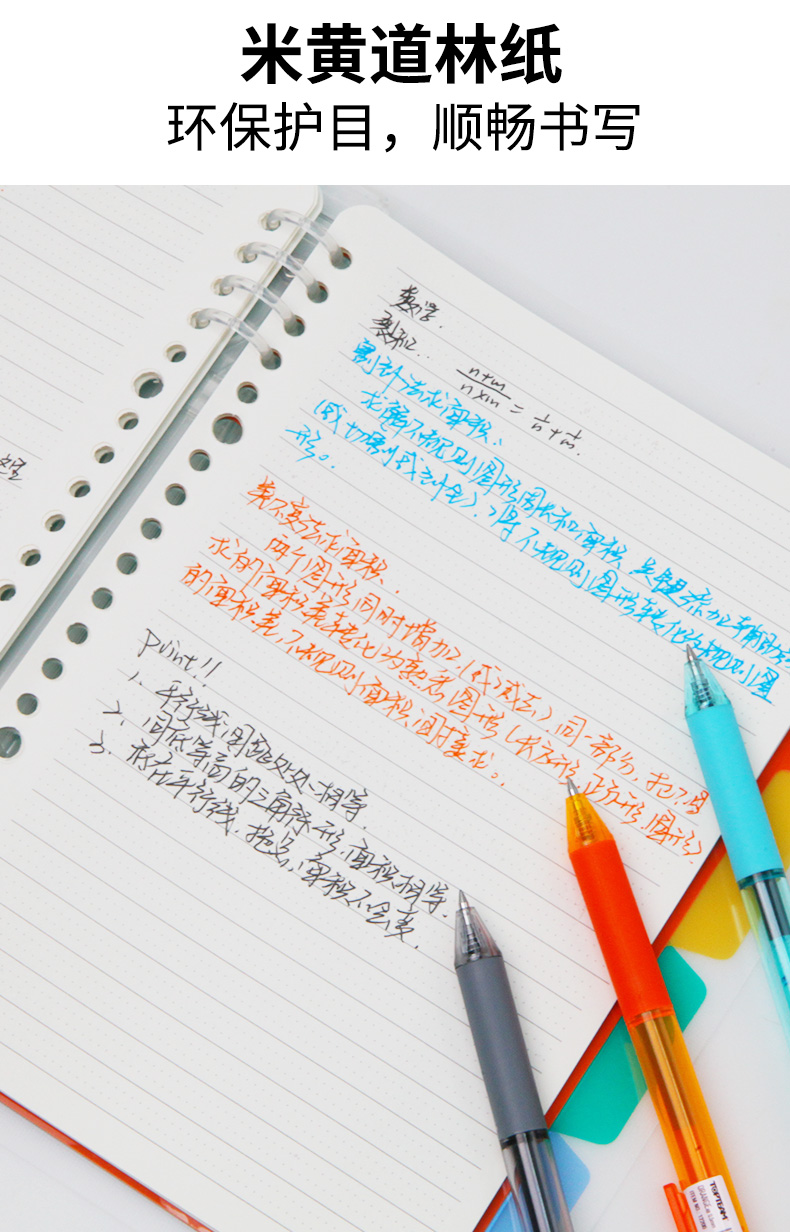 米黄道林纸
环保护目，顺畅书写
数学.
裂和：
n+m/n×m = 1/n + 1/m.
割补法求面积、
求解不规则图形周长和面积，关键添加辅助
(或切割或剪拼)，将不规则图形转化为规则图
形。
差不变法求面积.
两个图形同时增加(或减去)同一部分，把所
求的面积差转化为熟悉图形(长方形，正方形，图形)
的面积差，不规则面积间接求。
Point!!
1、平行线间距处处相等.
2、同底等高的三角形，面积相等.
3、
平行线，
面积不会变.
TOPTEAM